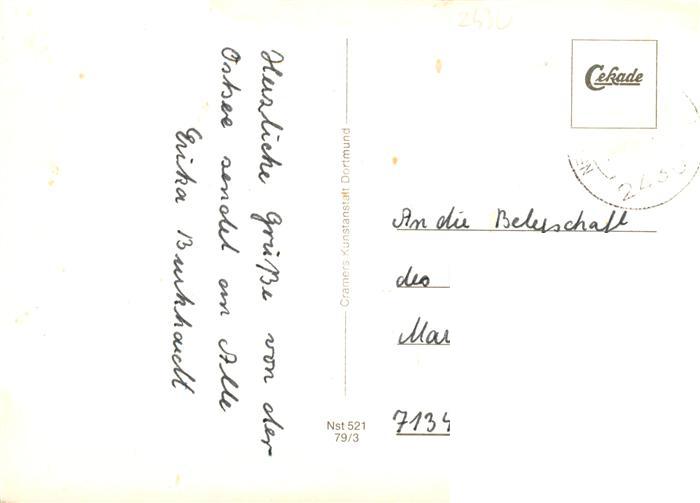 Herzliche Grüße von der
Ostsee sendet an Alle
Erika Burkhardt
Cramers Kunstanstalt Dortmund
Nst 521
79/3
Cekade
An die Belegschaft
des
Mar
7134